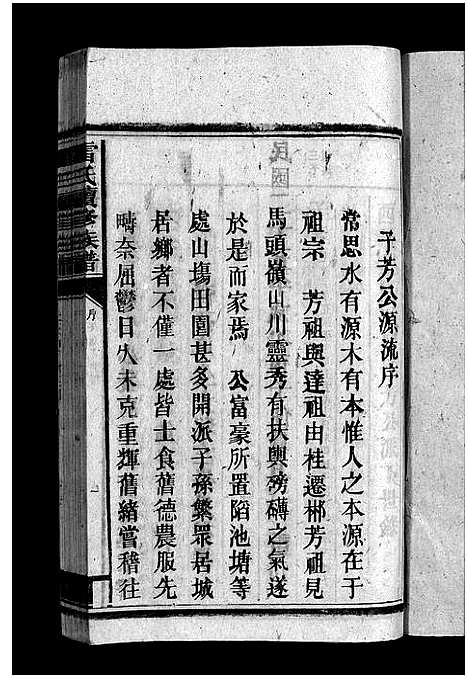 子芳公源流序
常思水有源木有本惟人之本源在于
祖宗 芳祖與達祖由桂遷郴芳祖見
馬頭嶺山川靈秀有扶輿磅礡之氣遂
於是而家焉 公富豪所置陷池塘等
處山塲田園甚多開派子孫繁眾居城
居鄉者不僅一處皆士食舊德農服先
疇奈屈鬱日久未克重輝舊緒嘗稽往
雷氏續修族譜
民國